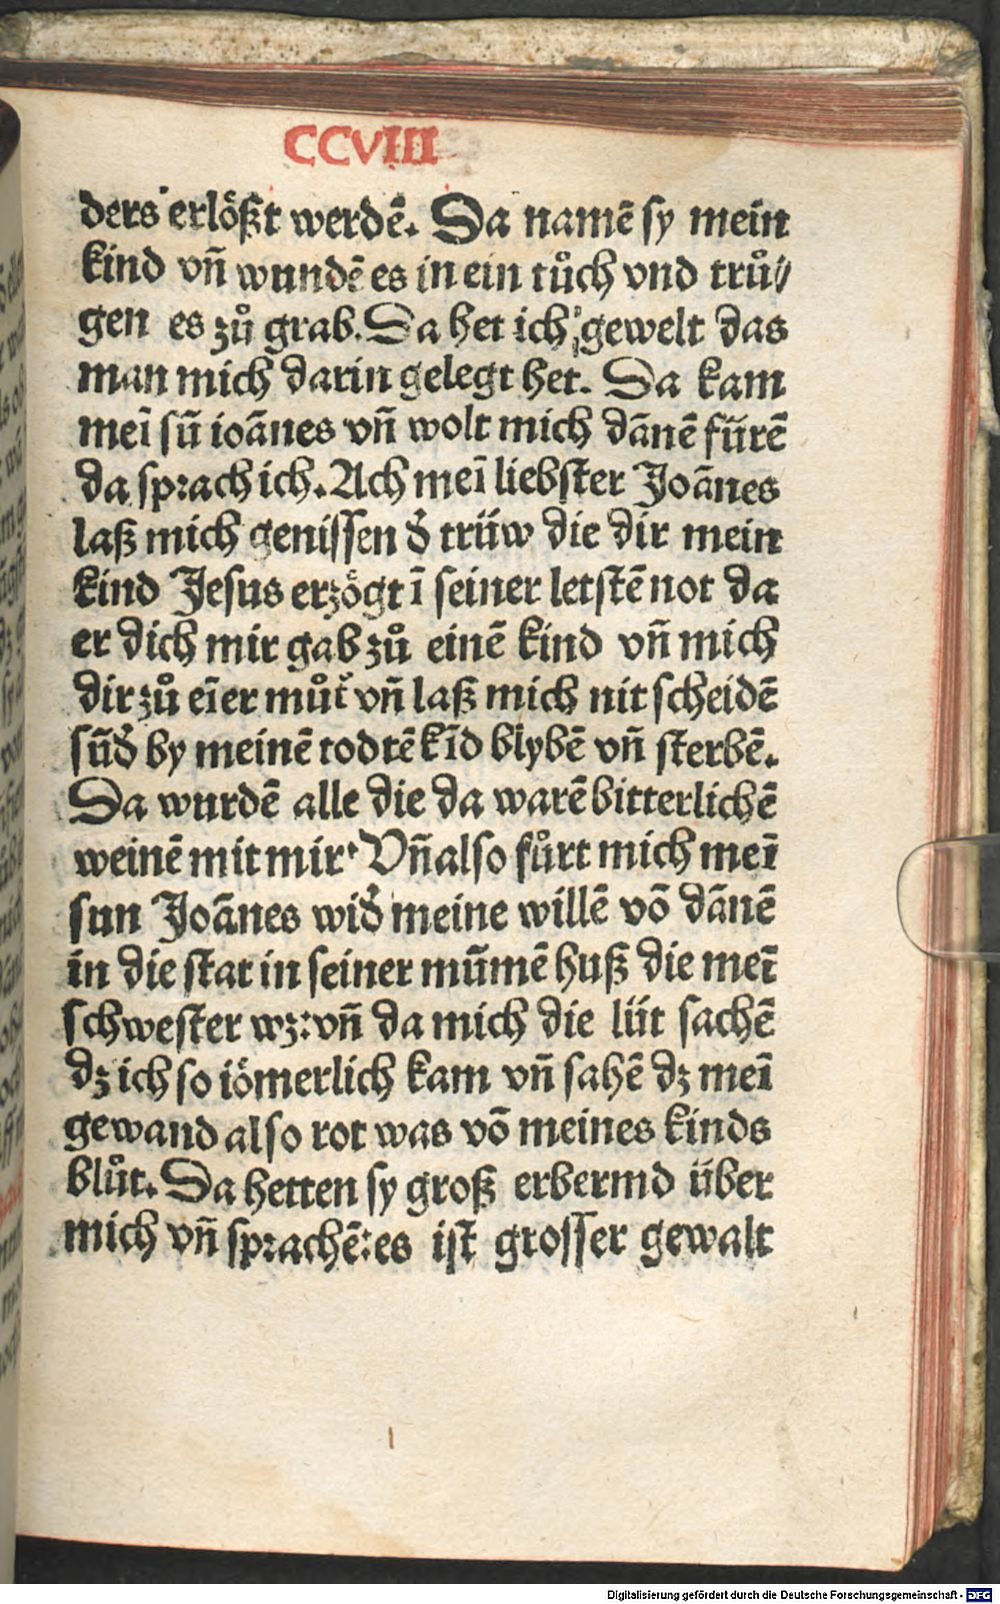 CCVIII
ders erlößt werdē. Da namē sy mein
kind vñ wundē es in ein tůch vnd trů⸗
gen es zů grab. Da het ich gewelt das
man mich darin gelegt het. Da kam
meī sū ioānes vñ wolt mich dānē fürē
da sprach ich. Ach meī liebster Joānes
laß mich genissen d̕ trüw die dir mein
kind Jesus erzögt ī seiner letstē not da
er dich mir gab zů einē kind vñ mich
dir zů eīer můt̕ vñ laß mich nit scheidē
sūd̕ by meinē todtē kīd blybē vñ sterbē.
Da wurdē alle die da warē bitterlichē
weinē mit mir. Vñ also fůrt mich meī
sun Joānes wid̕ meine willē vō dānē
in die stat in seiner mūmē huß die meī
schwester wz: vñ da mich die lüt sachē
dz ich so iömerlich kam vñ sahē dz meī
gewand also rot was vō meines kinds
blůt. Da hetten sy groß erbermd über
mich vñ sprachē: es ist grosser gewalt
Digitalisierung gefördert durch die Deutsche Forschungsgemeinschaft - DFG